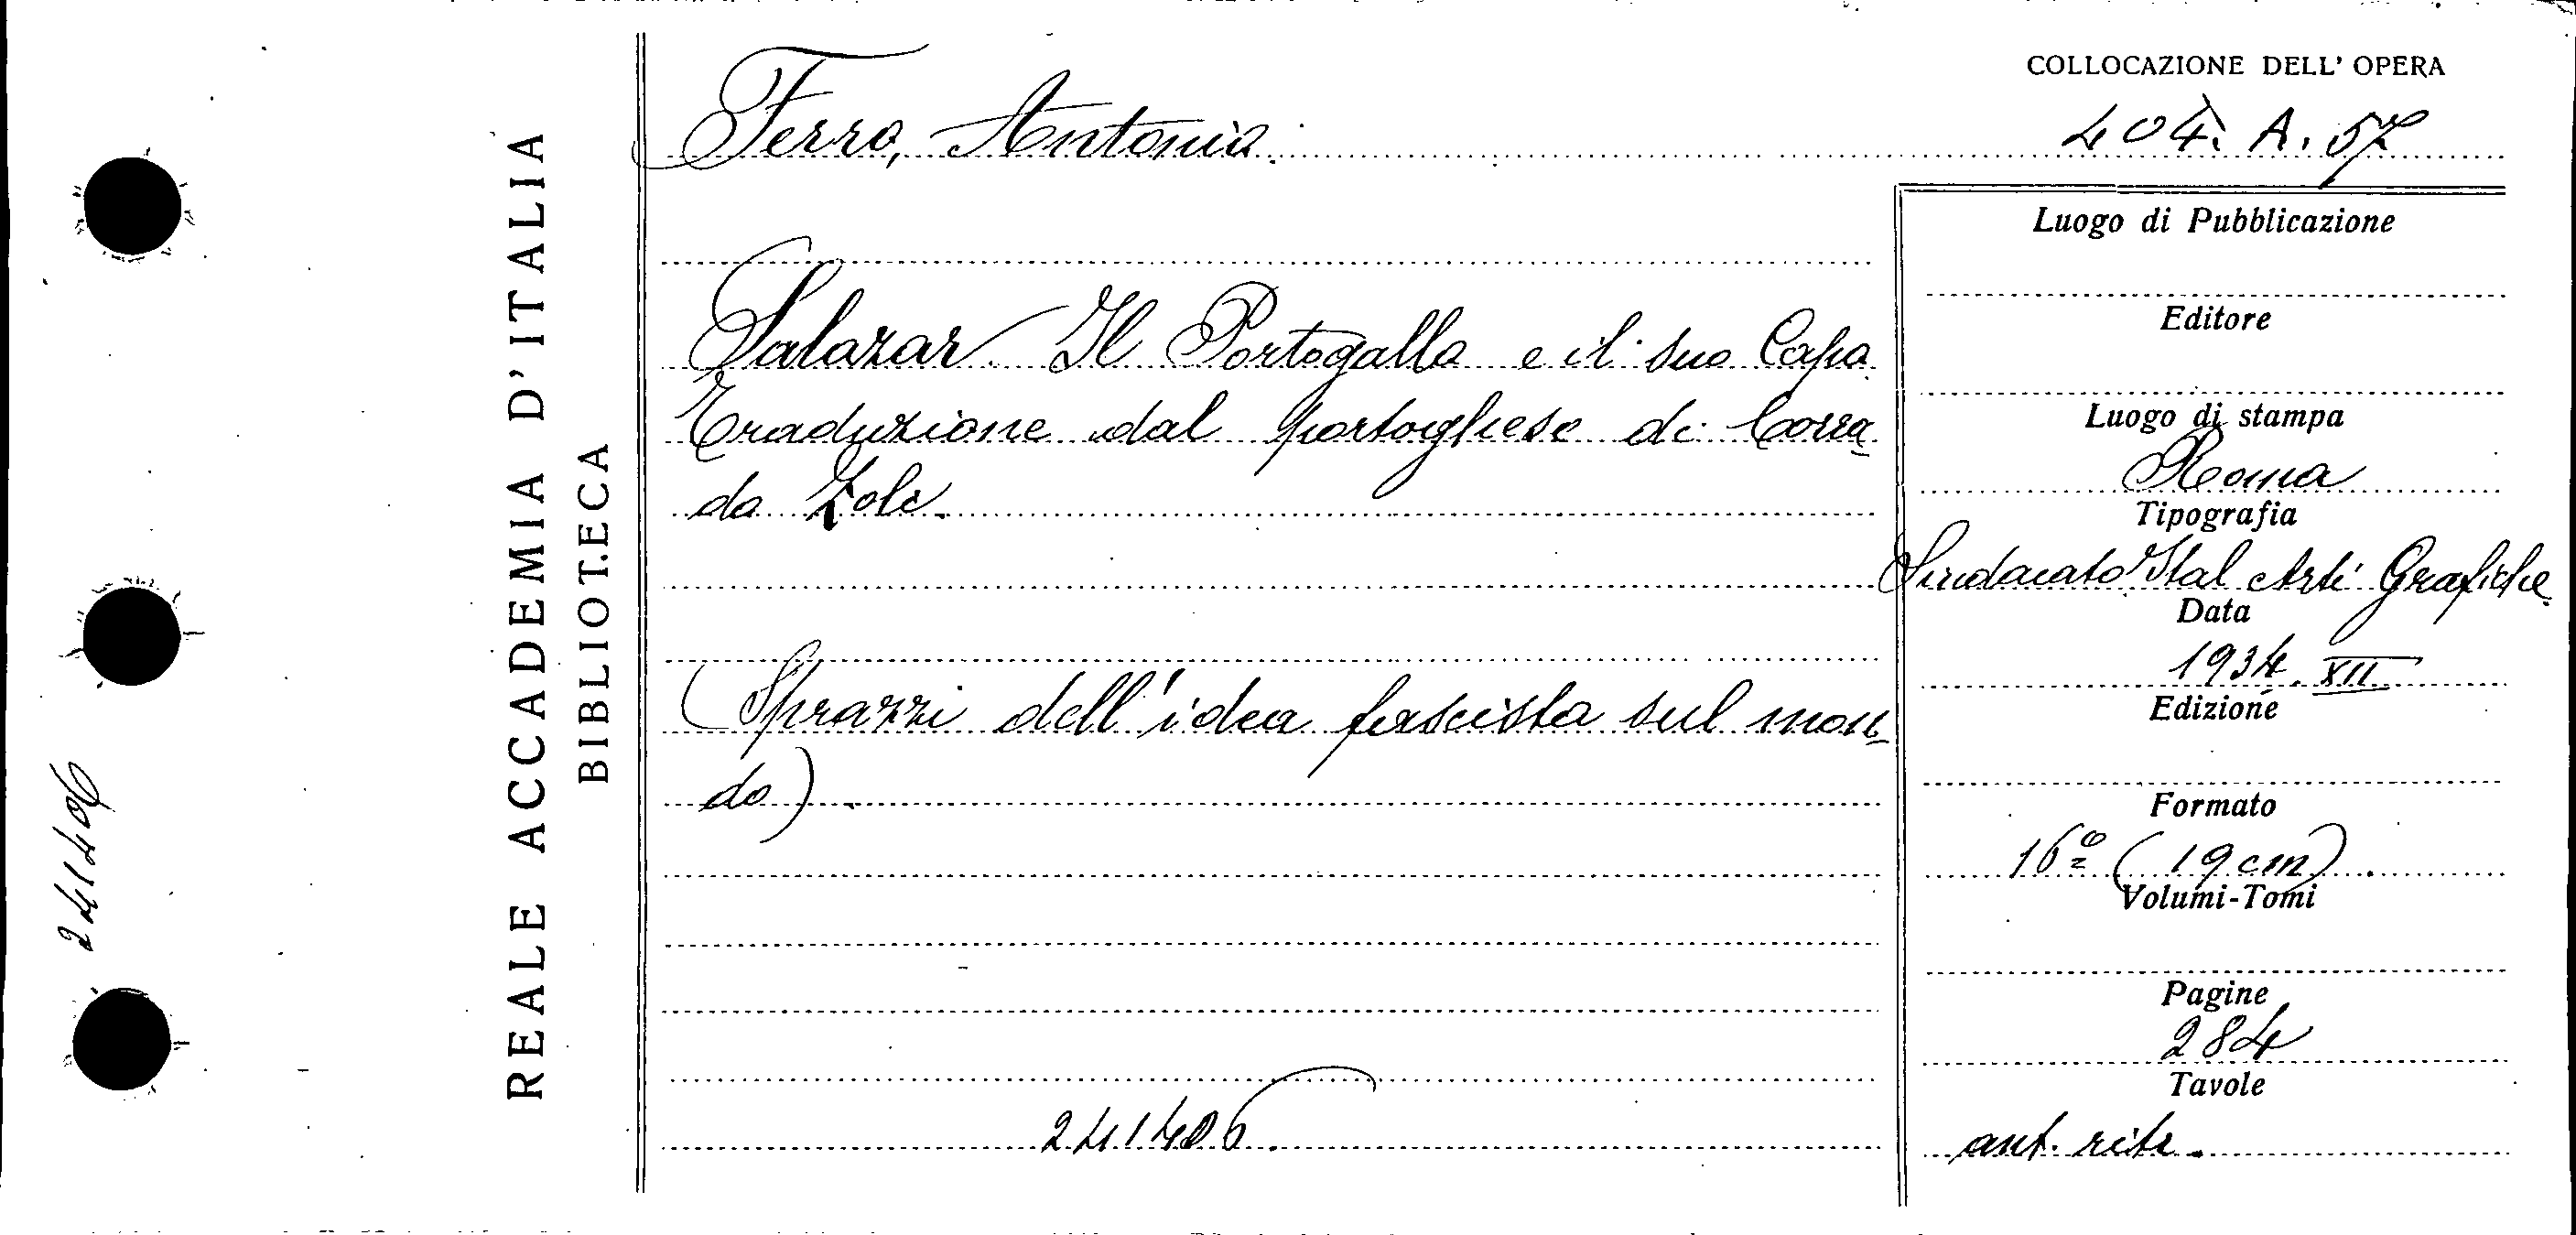 COLLOCAZIONE DELL' OPERA
Ferro, Antonio.
404. A. 57
REALE ACCADEMIA D'ITALIA
BIBLIOTECA
Salazar. Il Portogallo e il suo Capo
Traduzione dal portoghese di Corra-
do Zoli.
(Sprazzi dell'idea fascista sul mon-
do).
241406.
Luogo di Pubblicazione
Editore
Luogo di stampa
Roma
Tipografia
Sindacato Ital Arti Grafiche
Data
1934. XII
Edizione
Formato
16º (19 cm).
Volumi-Tomi
Pagine
284
Tavole
ant. ritr.
241406